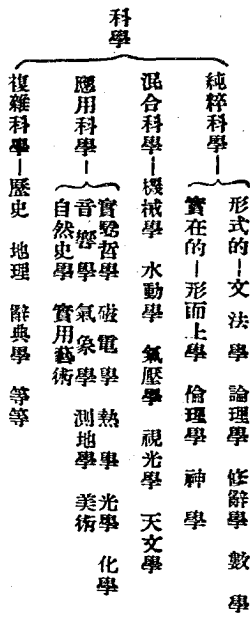 科學
純粹科學
形式的—文法學 論理學 修辭學 數學
實在的—形而上學 倫理學 神學
混合科學—機械學 水動學 氣壓學 視光學 天文學
應用科學
實驗哲學 磁電學 熱學 光學 化學
音響學 氣象學 測地學 美術
自然史學 實用藝術
複雜科學—歷史 地理 辭典學 等等